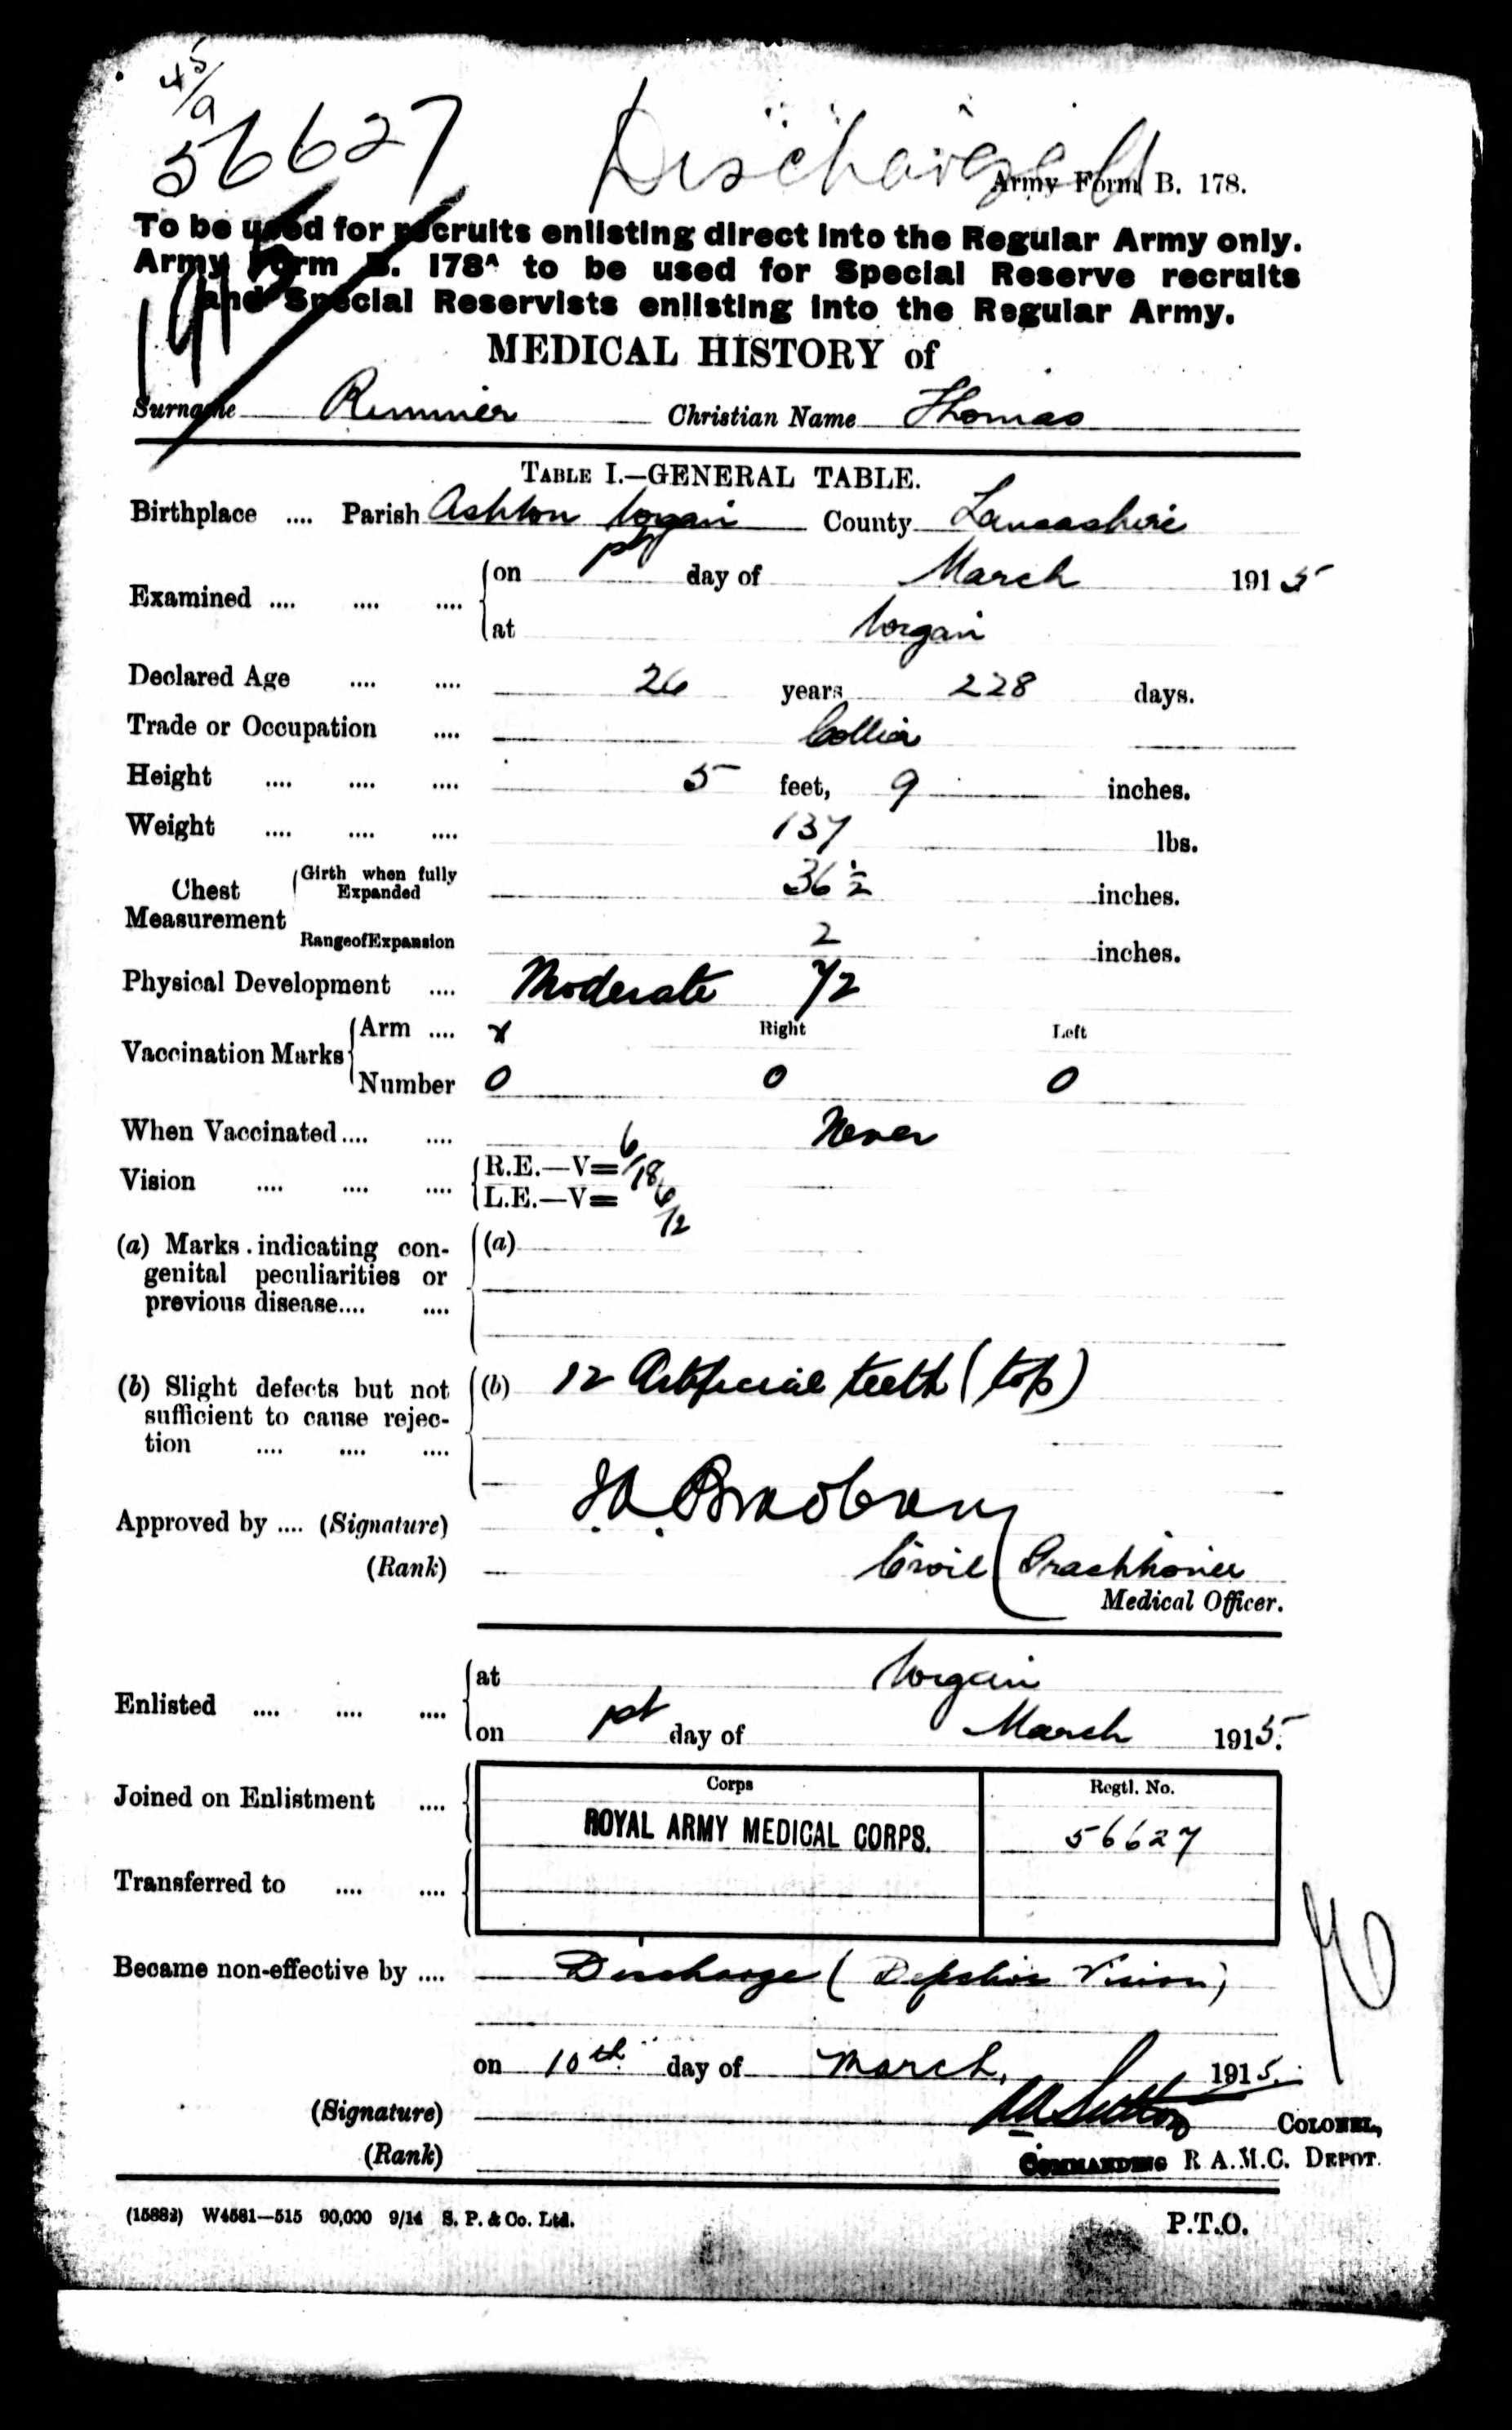 45/a
56627
Discharged
Army Form B. 178.
To be used for recruits enlisting direct into the Regular Army only.
Army Form B. 178ᴬ to be used for Special Reserve recruits
and Special Reservists enlisting into the Regular Army.
MEDICAL HISTORY of
Surname Rimmer Christian Name Thomas
TABLE I.—GENERAL TABLE.
Birthplace .... Parish Ashton Wigan County Lancashire
Examined .... .... .... on 1st day of March 1915
at Wigan
Declared Age .... .... 26 years 228 days.
Trade or Occupation .... Collier
Height .... .... .... 5 feet, 9 inches.
Weight .... .... .... 137 lbs.
Chest Measurement Girth when fully Expanded 36 ½ inches.
Range of Expansion 2 inches.
Physical Development .... Moderate
Vaccination Marks Arm .... x Right Left
Number 0 0 0
When Vaccinated .... .... Never
Vision .... .... .... R.E.—V= 6/18
L.E.—V= 6/12
(a) Marks indicating con- (a)
genital peculiarities or
previous disease.... ....
(b) Slight defects but not (b) 12 Artificial teeth (top)
sufficient to cause rejec-
tion .... .... ....
Approved by .... (Signature)
(Rank) Civil Practitioner
Medical Officer.
Enlisted .... .... .... at Wigan
on 1st day of March 1915.
Corps Regtl. No.
Joined on Enlistment .... ROYAL ARMY MEDICAL CORPS. 56627
Transferred to .... ....
Became non-effective by .... Discharge (Defective Vision)
on 10th day of March, 1915.
(Signature) Sutton COLONEL,
(Rank) COMMANDING R.A.M.C. DEPOT.
(15882) W4581—515 90,000 9/14 S. P. & Co. Ltd.
P.T.O.